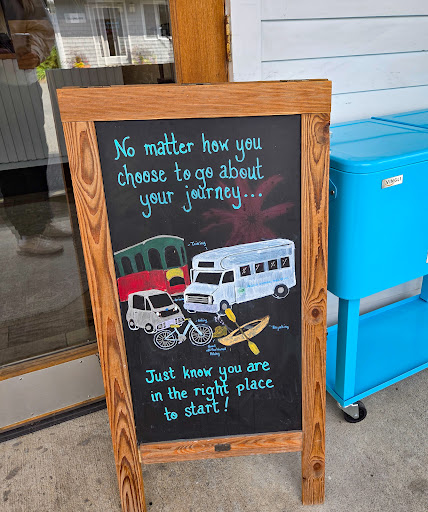 No matter how you
choose to go about
your journey...
Just know you are
in the right place
to start!
VINGLI